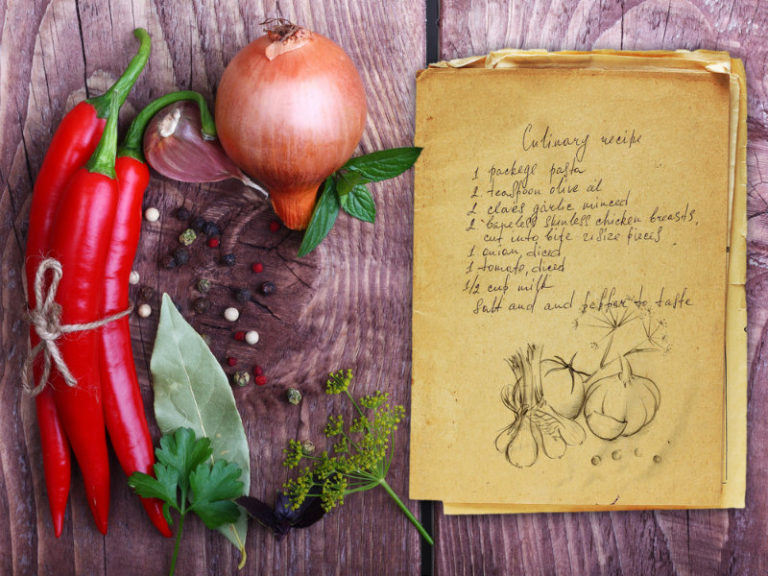 Culinary recipe
1 packege pasta
2 teaspoon olive oil
2 cloves garlic minced
2 boneless skinless chicken breasts,
cut into bite-size pieces
1 onion, diced
1 tomato, diced
1/2 cup milk
Salt and and pepper to taste